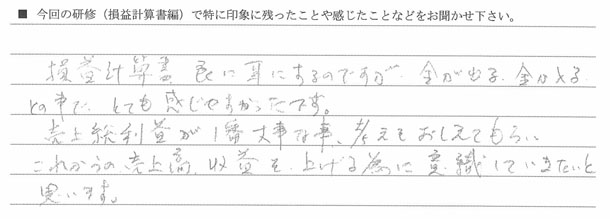 ■ 今回の研修（損益計算書編）で特に印象に残ったことや感じたことなどをお聞かせ下さい。
損益計算書、良に耳にするのですが、金が出る、金が入る
との事で、とても感じやすかったです。
売上総利益が1番大事な事、考えをおしえてもらい
これからの売上高、収益を上げる為に意識していきたいと
思います。